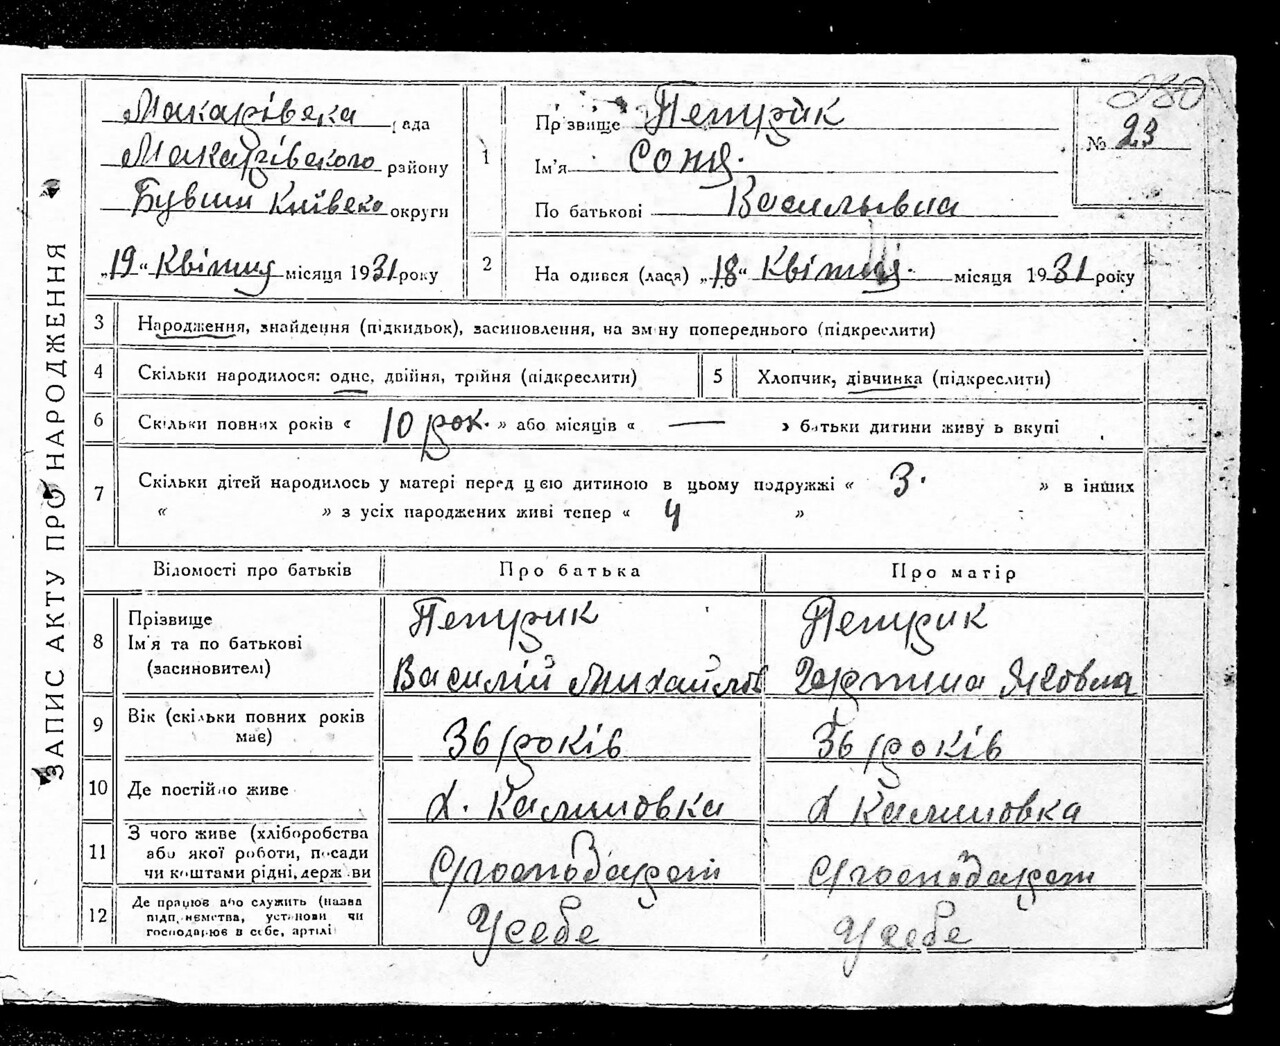 ЗАПИС АКТУ ПРО НАРОДЖЕННЯ
230
№ 23
Макарівска рада
Макарівского району
Бувши Київско округи
„19“ Квітня місяця 1931 року
1
Прізвище Петрик
Ім'я Соня.
По батькові Васильвна
2
На одився (лася) „18“ Квітня. місяця 1931 року
3 Народження, знайдення (підкидьок), засиновлення, на зміну попереднього (підкреслити)
4 Скільки народилося: одне, двійня, трійня (підкреслити)
5 Хлопчик, дівчинка (підкреслити)
6 Скільки повних років « 10 рок. » або місяців « — » батьки дитини живуть вкупі
7 Скільки дітей народилось у матері перед цією дитиною в цьому подружжі « 3. » в інших
« » з усіх народжених живі тепер « 4 »
Відомості про батьків Про батька Про матір
8 Прізвище
Ім'я та по батькові
(засиновителі)
Петрик
Василій Михайлов
Петрик
Яковна
9 Вік (скільки повних років
має)
36 років
36 років
10 Де постійно живе
х. Калиновка
х Калиновка
11 З чого живе (хліборобства
або якої роботи, посади
чи коштами рідні, держ ви
С/господарст
С/господарст
12 Де працює або служить (назва
підприємства, установи чи
господарює в себе, артілі
Усебе
Усебе